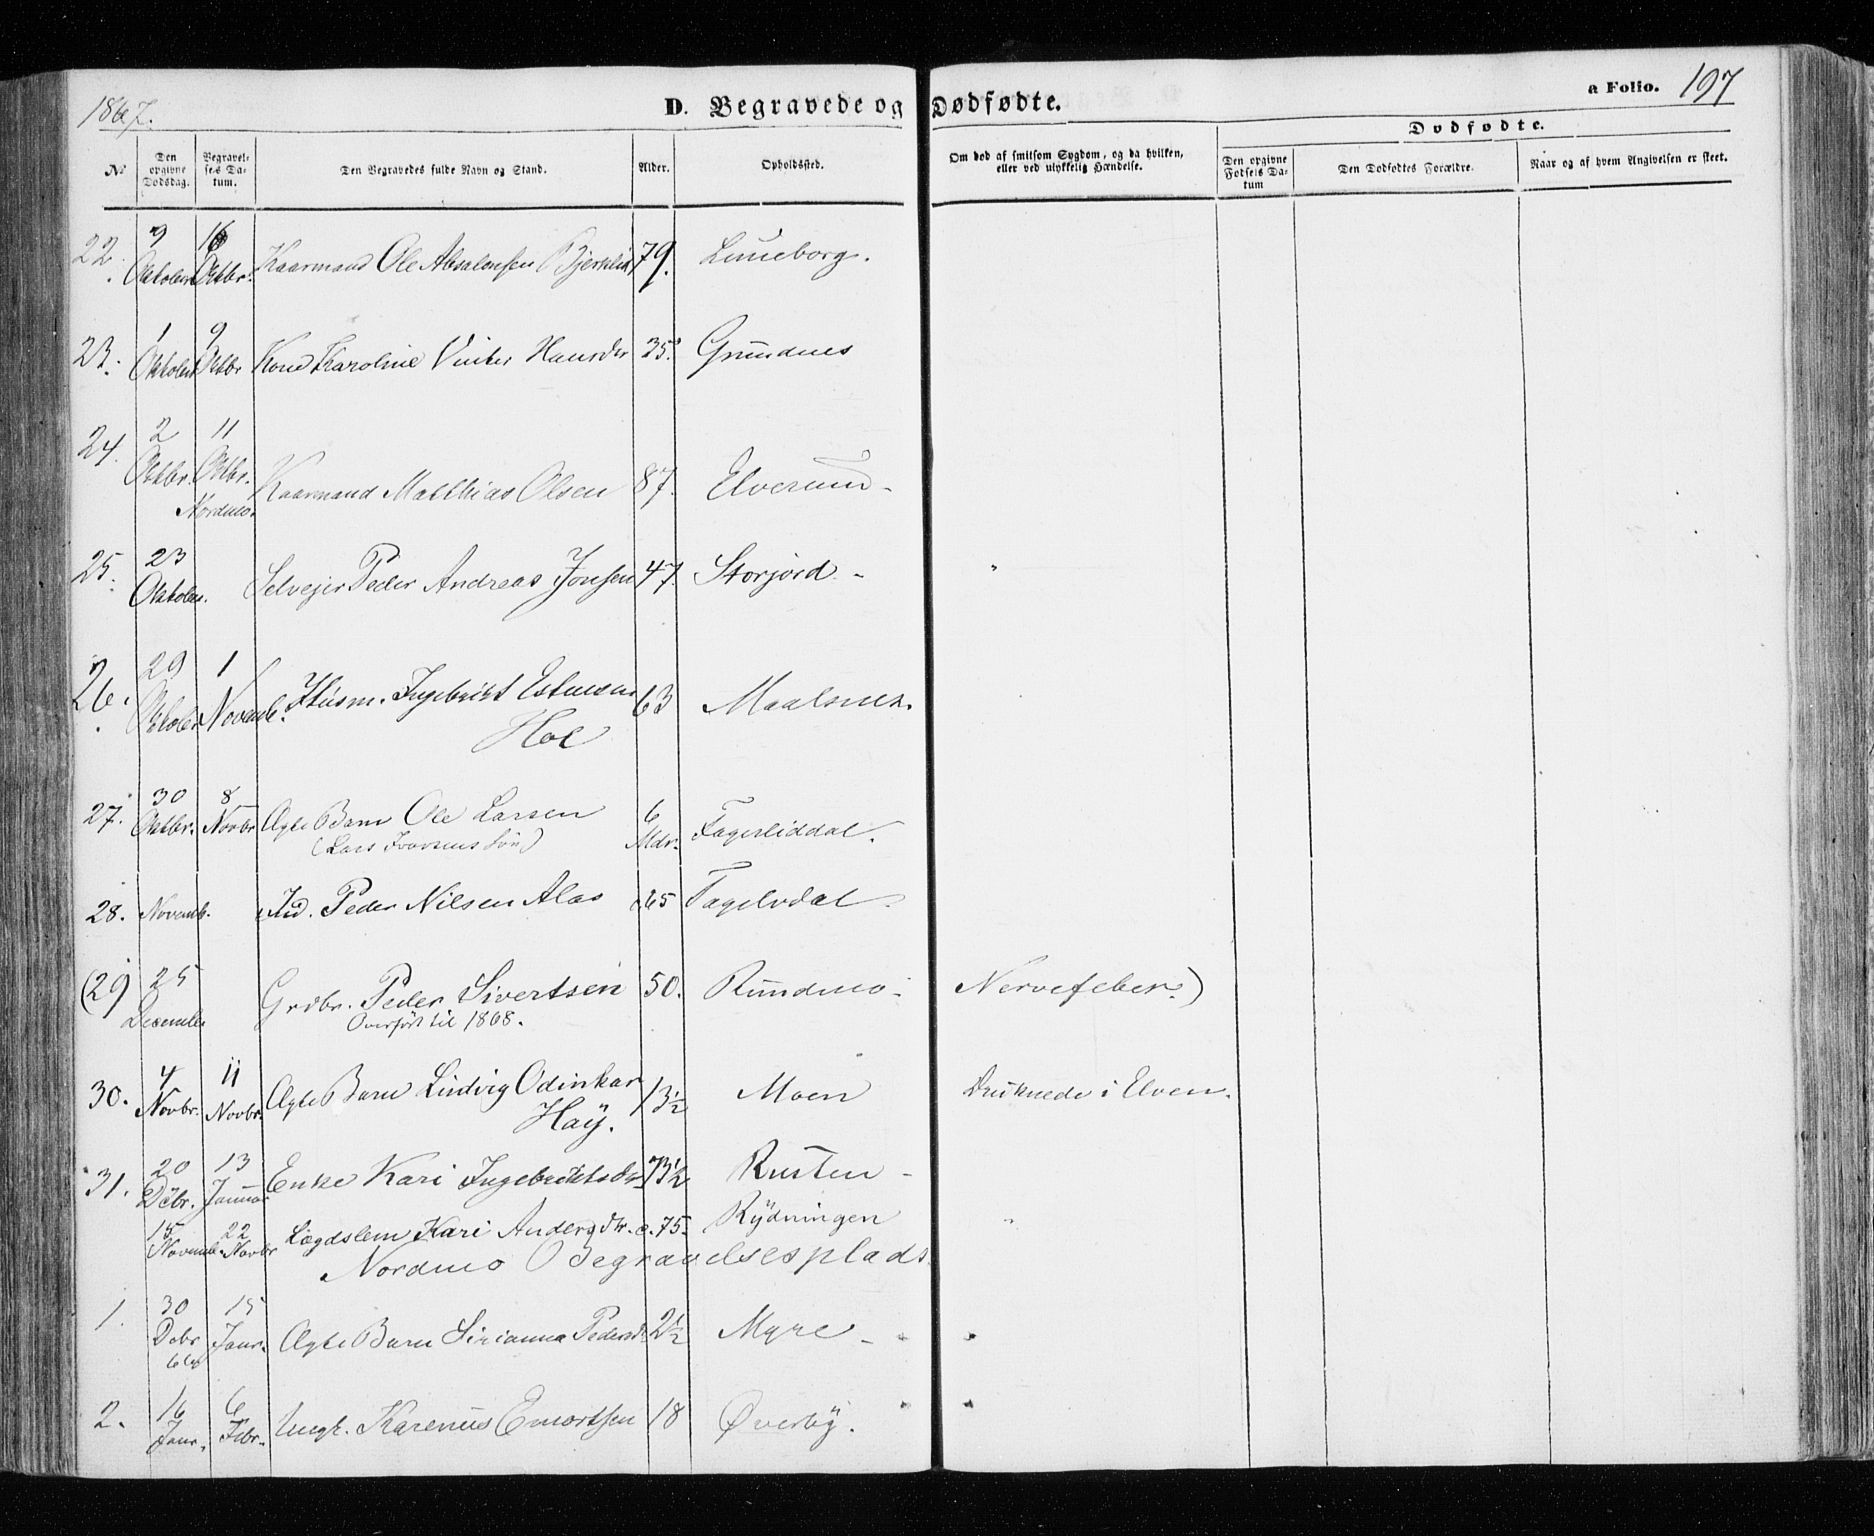 1867.
D. Begravede og Dødfødte.
a Folio. 197
No
Den opgivne Dødsdag.
Begravelses Datum.
Den Begravedes fulde Navn og Stand.
Alder.
Opholdssted.
Om død af smitsom Sygdom, og da hvilken, eller ved ulykkelig Hændelse.
Dødfødte.
Den opgivne Fødsels Datum
Den Dødfødtes Forældre.
Naar og af hvem Angivelsen er skeet.
22. 9 Oktober 16 Oktbr. Kaarmand Ole Absalonsen Bjerklid 79. Luneborg.
23. 1 Oktober 9 Oktbr Kone Karoline Vinter Hansdr 35. Grundnes
24. 2 Oktbr. 11 Oktbr. Nordmo. Kaarmand Matthias Olsen 87. Elverum -
25. 23 Oktober. Selvejer Peder Andreas Jonsen 47. Storjord - "
26. 29 Oktober 1 Novemb. Husm. Ingebrikt Estensen 63 Maalsnes.
Hol
27. 30 Oktbr. 8 Novbr Ægte Barn Ole Larsen 6 Mdr. Fagerliddal.
(Lars Ivarsens Søn)
28. Novemb. Ind. Peder Nilsen Alas 65 Tagelvdal -
(29 25 Decembr Grdbr. Peder Sivertsen 50. Rundmo - Nervefeber.)
Overført til 1868.
30. 4 Novbr. 11 Novbr. Ægte Barn Ludvig Odinkar 13½ Moen Druknede i Elven.
Høy.
31. 20 Dcbr. 13 Januar Enke Kari Ingebriktsdr 73½ Rusten -
15 Novemb. 22 Novbr Lægdslem Kari Andersdtr. c. 75. Rydningen "
Nordmo Begravelsesplads.
1. 30 Dcbr 15 Janr. Ægte Barn Sirianna Pedersdr 2½ Myre - "
2. 16 Janr. 6 Febr. Ungk. Karenius Emortsen 18 Øverby. "